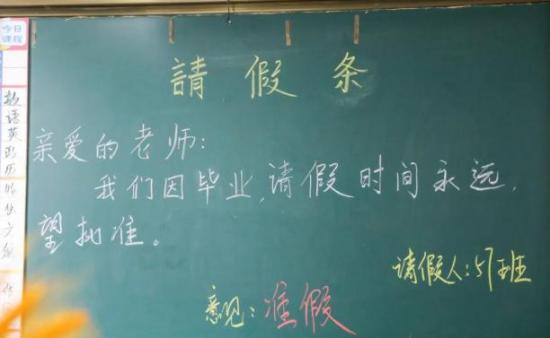 今日
课程
請假条
亲爱的老师：
我们因毕业,请假时间永远,
望批准。
请假人:57班
意见:准假
数
语
英
历